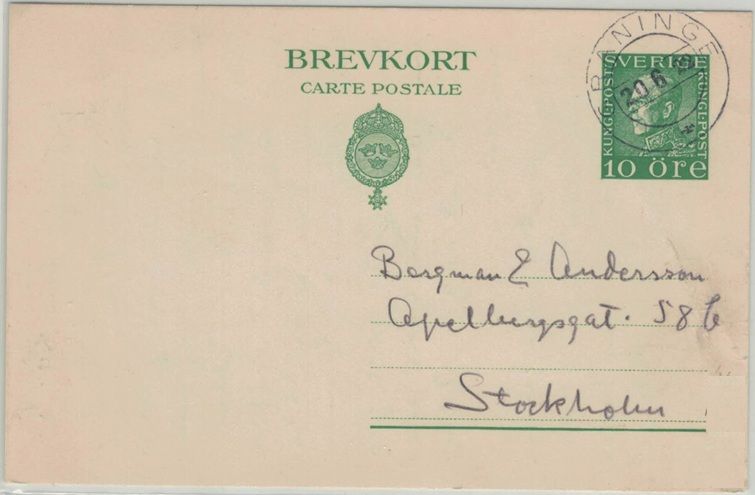 BREVKORT
CARTE POSTALE
SVERIGE
KUNGL·POST
KUNGL·POST
10 öre
20 6
Bergman & Andersson
Apelbergsgat. 58
Stockholm